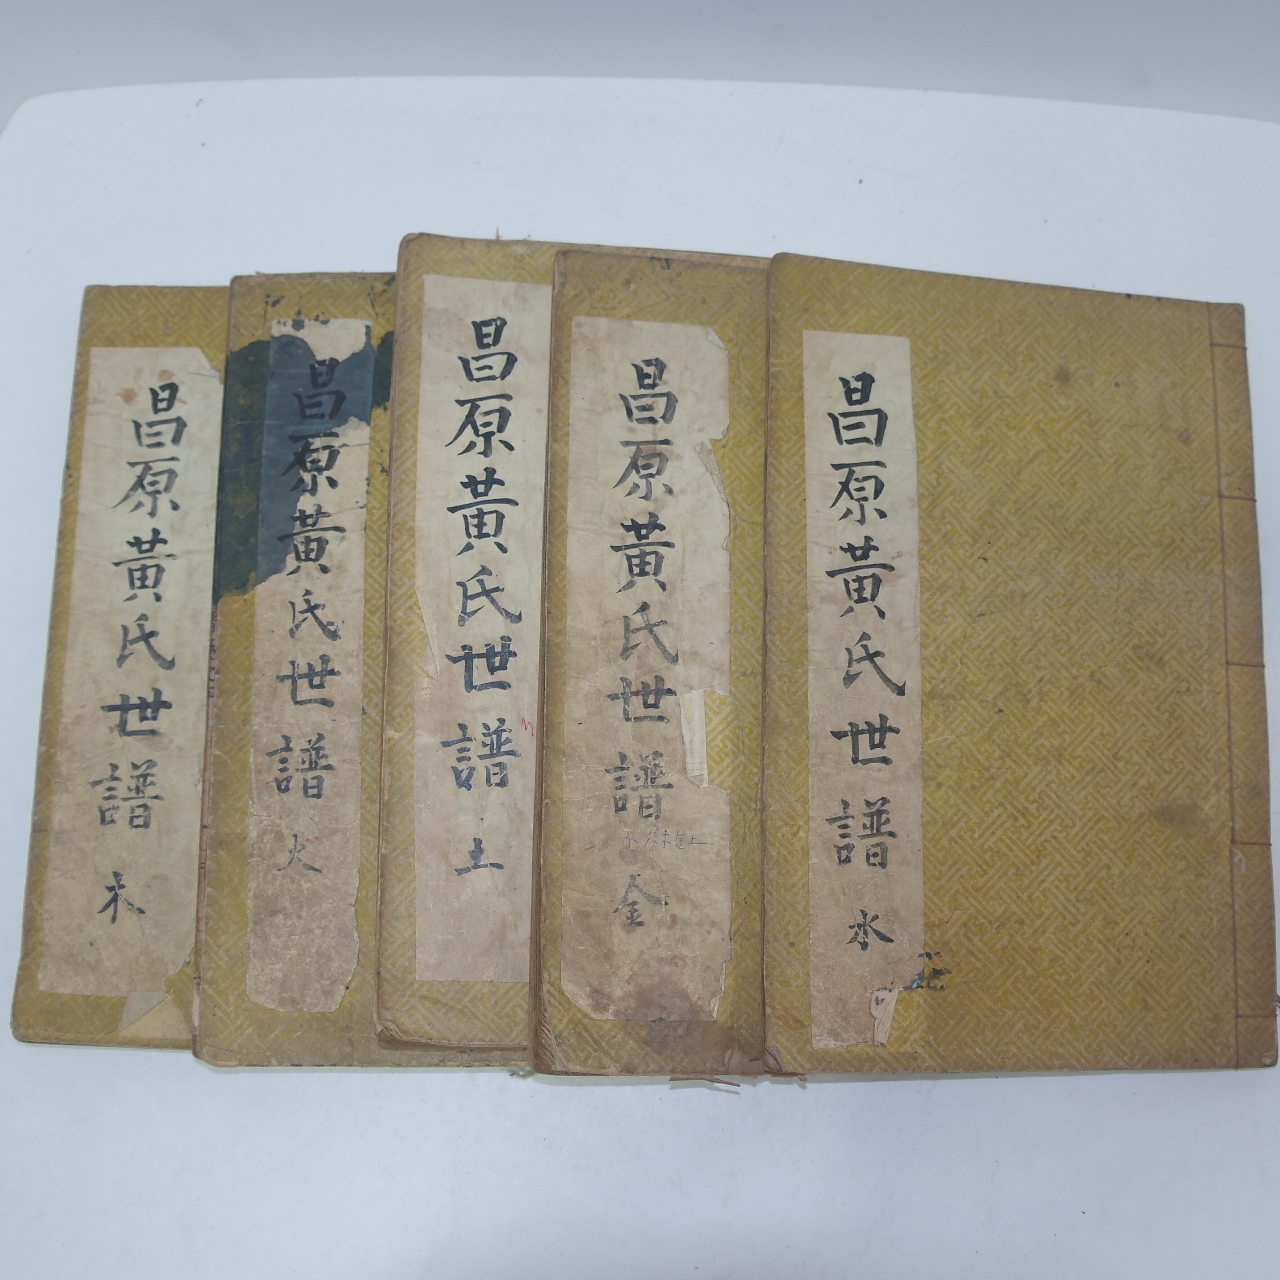 昌原黃氏世譜 水
昌原黃氏世譜 金
昌原黃氏世譜 土
昌原黃氏世譜 火
昌原黃氏世譜 木